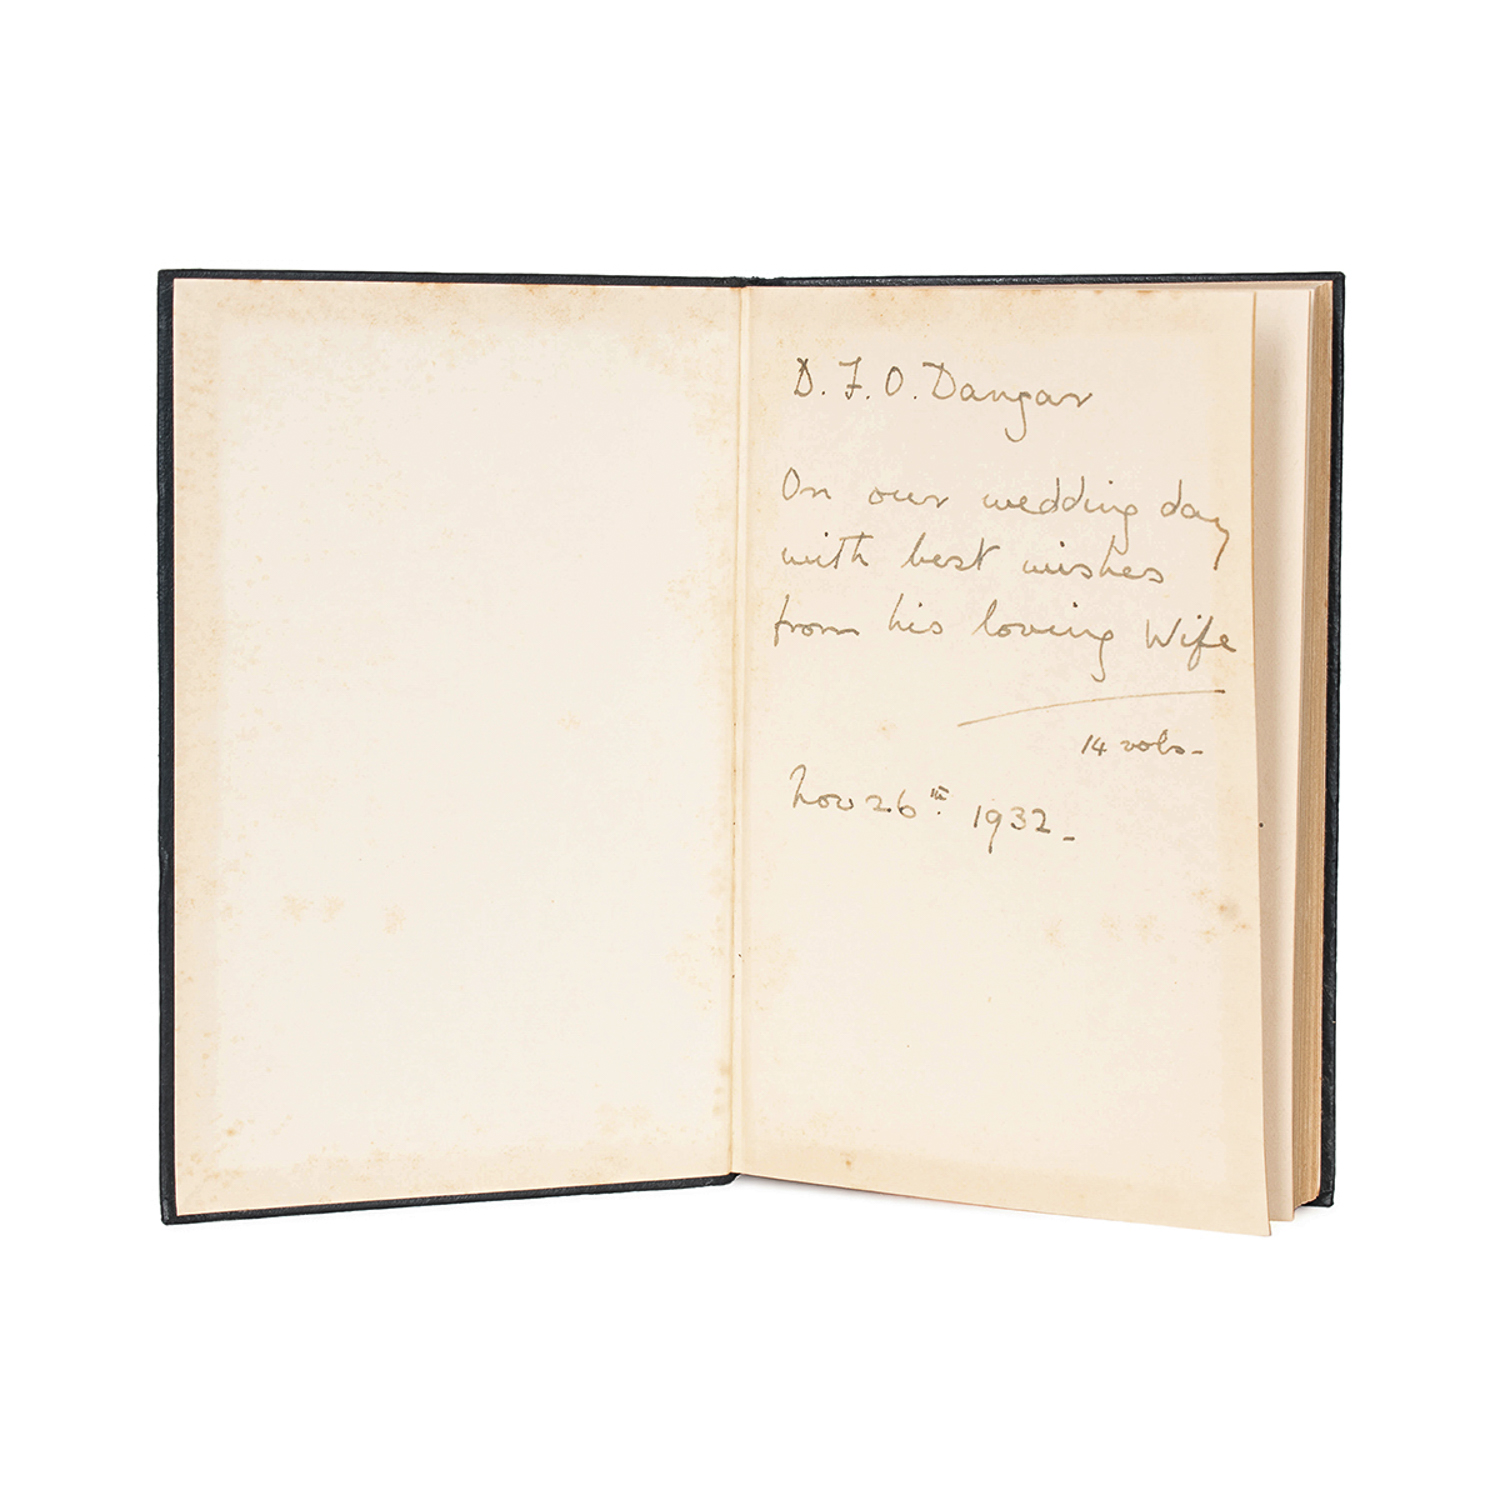 D. F. O. Dangar
On our wedding day
with best wishes
from his loving Wife
14 vols-
Nov 26th. 1932-